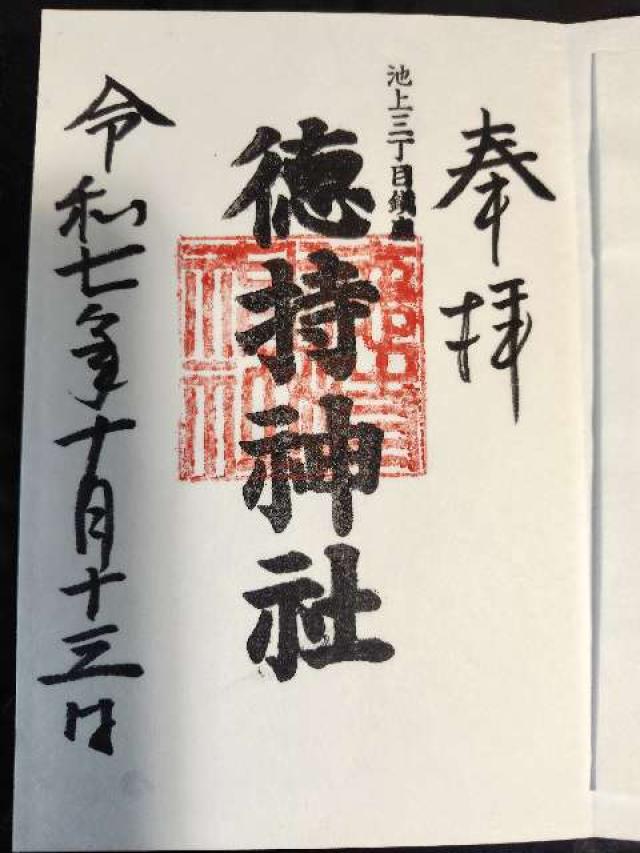 奉拝
池上三丁目鎮座
徳持神社
令和七年十月十三日